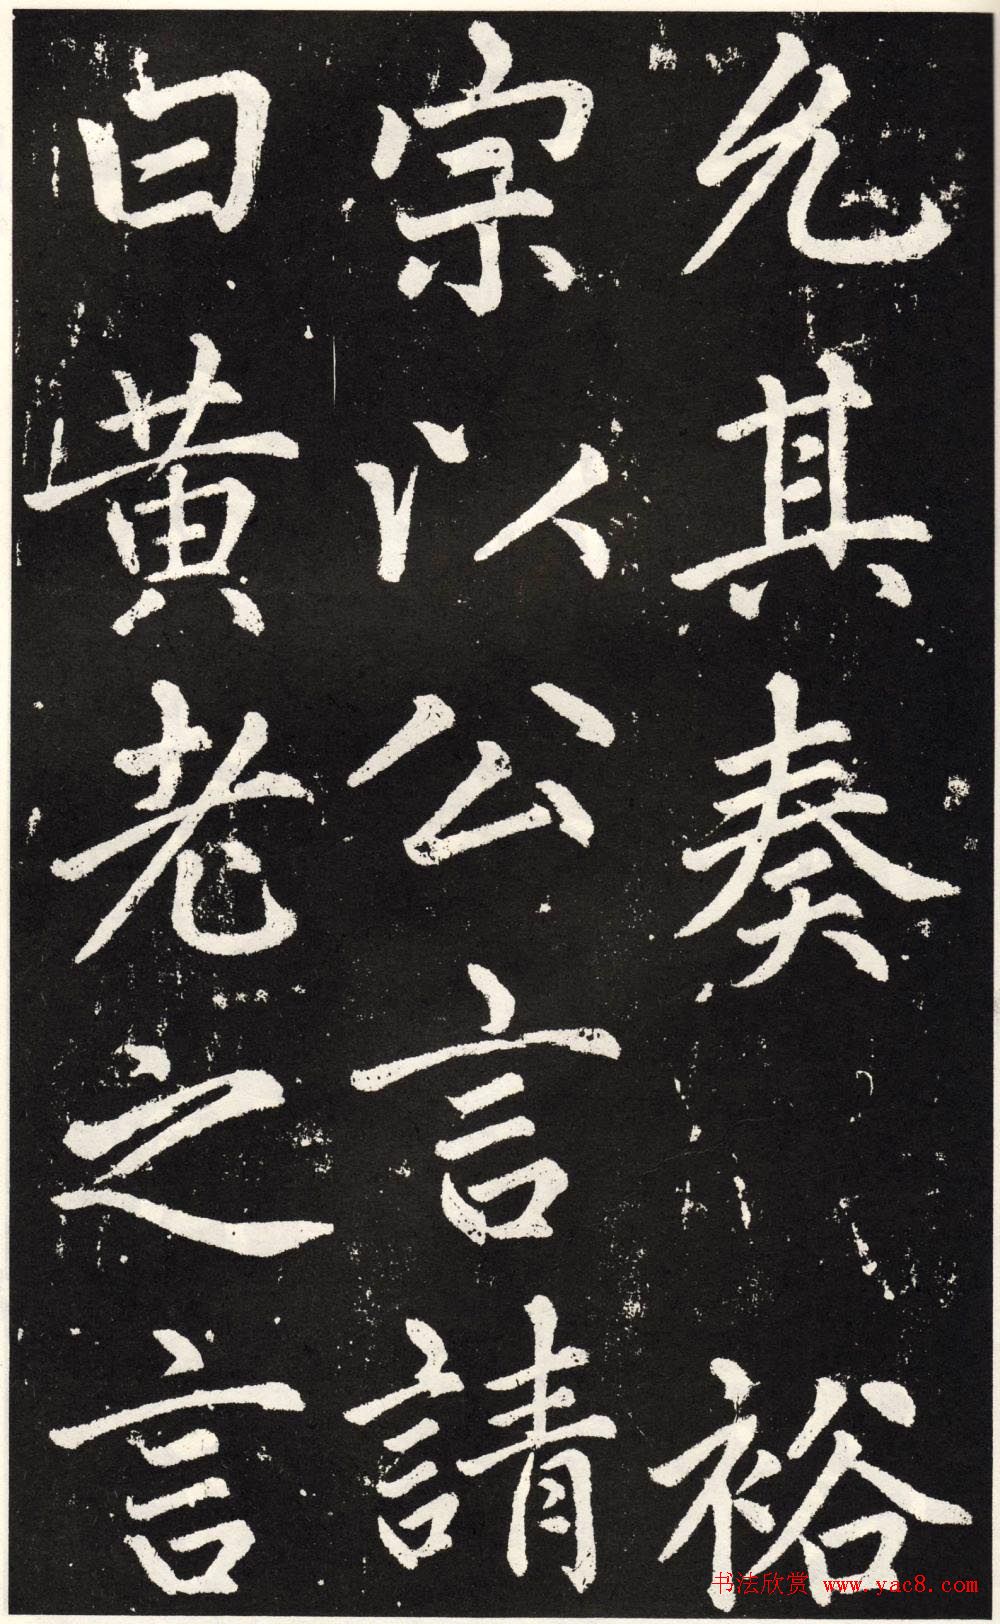 允其奏裕
宗以公言請
曰黄老之言
书法欣赏 www.yac8.com